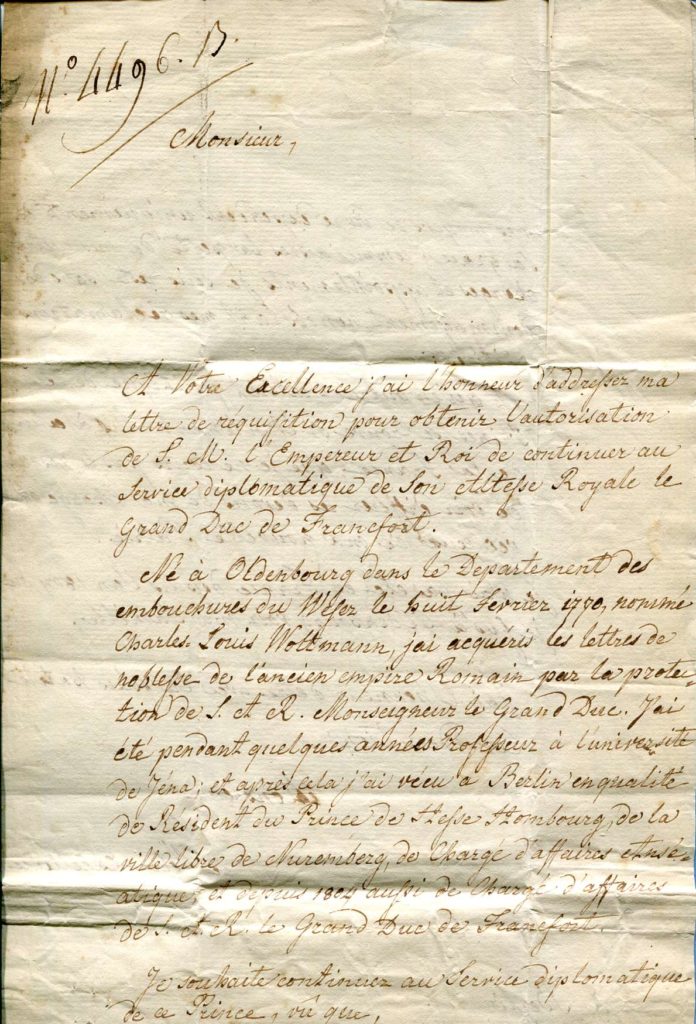 N° 4496. B.
Monsieur,
A Votre Excellence j'ai l'honneur d'addresser ma
lettre de réquisition pour obtenir l'autorisation
de S. M. l'Empereur et Roi de continuer au
Service diplomatique de Son Altesse Royale le
Grand Duc de Francfort.
Né à Oldenbourg dans le Departement des
embouchures du Weser le huit Fevrier 1770, nommé
Charles Louis Woltmann, j'ai acquéris les lettres de
noblesse de l'ancien empire Romain par la protec-
tion de S. A. R. Monseigneur le Grand Duc. J'ai
été pendant quelques années Professeur à l'université
de Jéna; et après cela j'ai vécu à Berlin en qualité
de Résident du Prince de Hesse Hombourg, de la
ville libre de Nuremberg, de Chargé d'affaires Ansé-
atique, et depuis 1804 aussi de Chargé d'affaires
de S. A. R. le Grand Duc de Francfort.
Je souhaite continuer au Service diplomatique
de ce Prince, vû que,